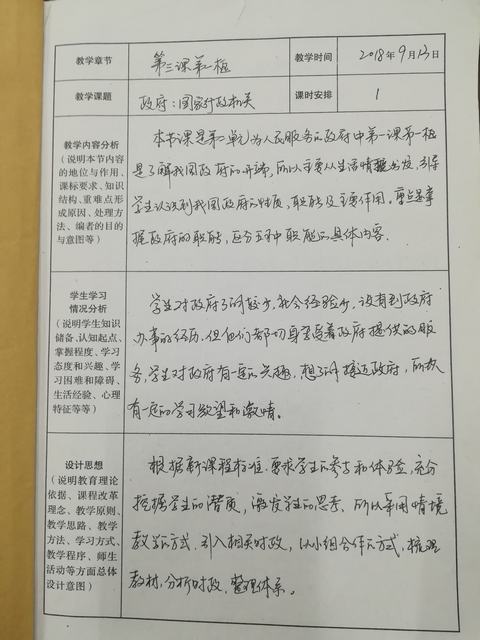 教学章节 第三课第一框 教学时间 2018年9月13日
教学课题 政府:国家行政机关 课时安排 1
教学内容分析
(说明本节内容
的地位与作用、
课标要求、知识
结构、重难点形
成原因、处理方
法、编者的目的
与意图等)
本节课是第二单元为人民服务的政府中第一课第一框
是了解我国政府的开端,所以主要从生活情景出发,引导
学生认识到我国政府的性质,职能及主要作用。重点是掌
握政府的职能,区分五种职能的具体内容.
学生学习
情况分析
(说明学生知识
储备、认知起点、
掌握程度、学习
态度和兴趣、学
习困难和障碍、
生活经验、心理
特征等等)
学生对政府了解较少,社会经验少,没有到政府
办事的经历.但他们都切身享受着政府提供的服
务,学生对政府有一定的兴趣,想了解接近政府,所以
有一定的学习欲望和激情。
设计思想
(说明教育理论
依据、课程改革
理念、教学原则、
教学思路、教学
方法、学习方式、
教学程序、师生
活动等方面总体
设计意图)
根据新课程标准,要求学生的参与和体验,充分
挖掘学生的潜质,激发学生的思考,所以采用情境
教学的方式,引入相关时政,以小组合作的方式,梳理
教材,分析时政,整理体系。